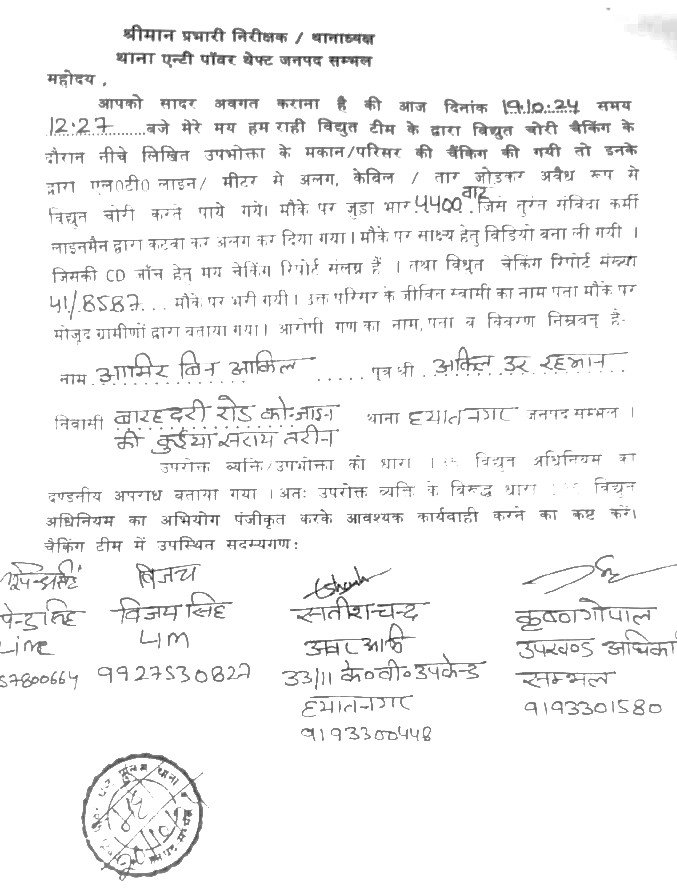 श्रीमान प्रभारी निरीक्षक / थानाध्यक्ष
थाना एन्टी पॉवर थेफ्ट जनपद सम्भल
महोदय ,
आपको सादर अवगत कराना है की आज दिनांक 19.10.24 समय
12.27 बजे मेरे मय हम राही विद्युत टीम के द्वारा विद्युत चोरी चैकिंग के
दौरान नीचे लिखित उपभोक्ता के मकान/परिसर की चैकिंग की गयी तो उनके
द्वारा एल0टी0 लाइन/ मीटर मे अलग, केबिल / तार जोडकर अवैध रूप मे
विद्युत चोरी करने पाये गये। मौके पर जुडा भार 4400 वाट जिसे तुरंत संविदा कर्मी
लाइनमैन द्वारा कटवा कर अलग कर दिया गया। मौके पर साक्ष्य हेतु विडियो बना ली गयी ।
जिसकी CD जॉच हेतु मय चेकिंग रिपोर्ट संलग्न हैं । तथा विधुत चेकिंग रिपोर्ट संख्या
41/8587... मौके पर भरी गयी। उक्त परिसर के जीवित स्वामी का नाम पता मौके पर
मोजूद ग्रामीणों द्वारा बताया गया। आरोपी गण का नाम, पता व विवरण निम्नवत् है-
नाम आमिर बिन आकिल ...... पुत्र श्री अकिल उर रहमान
निवासी बारहदरी रोड को-जाइन थाना हयातनगर जनपद सम्भल ।
की कुईया सराय तरीन
उपरोक्त व्यक्ति/उपभोक्ता को धारा विद्युत अधिनियम का
दण्डनीय अपराध बताया गया । अतः उपरोक्त व्यक्ति के विरूद्ध धारा विद्युत
अधिनियम का अभियोग पंजीकृत करके आवश्यक कार्यवाही करने का कष्ट करें।
चैकिंग टीम में उपस्थित सदस्यगण:
विजय
पेन्द्र सिंह विजय सिंह सतीशचन्द्र कृष्णगोपाल
Line L/M अवर अभि उपखण्ड अधिकारी
57800664 9927530827 33/11 के०वी० उपकेन्द्र सम्भल
हयातनगर 9193301580
9193300448